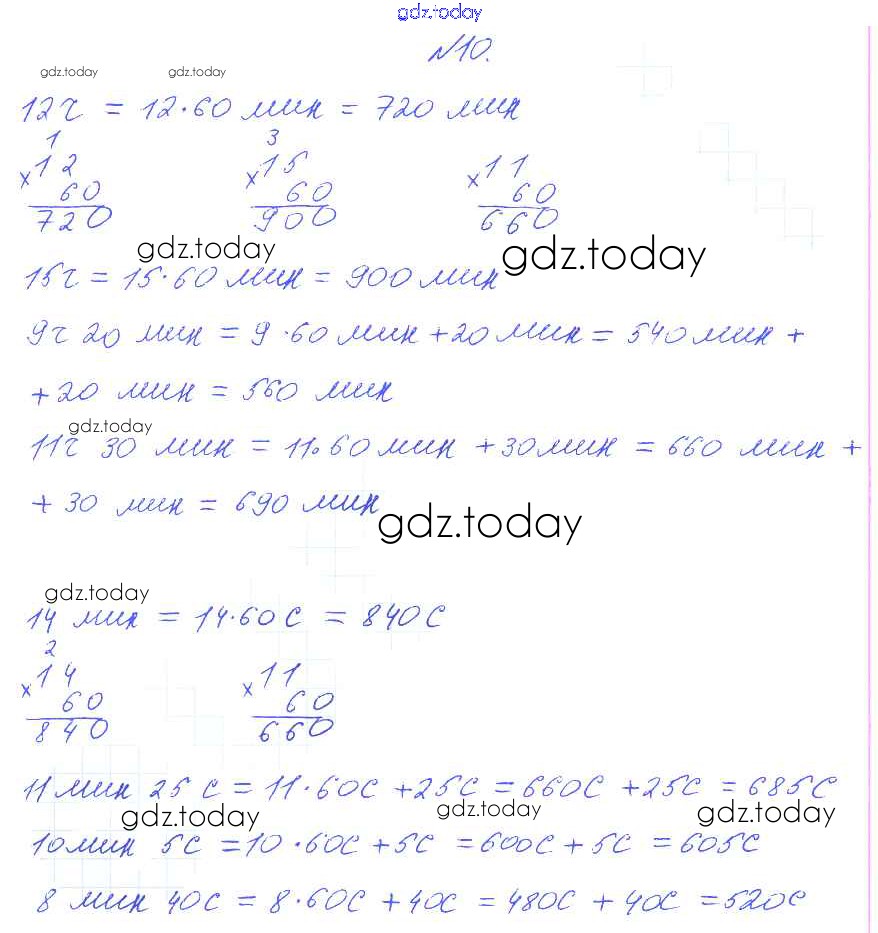 gdz.today
№10.
gdz.today gdz.today
12ч = 12·60 мин = 720 мин
1 3
×12 ×15 ×11
60 60 60
720 900 660
gdz.today gdz.today
15ч = 15·60 мин = 900 мин
9ч 20 мин = 9·60 мин + 20 мин = 540 мин +
+ 20 мин = 560 мин
gdz.today
11ч 30 мин = 11·60 мин + 30 мин = 660 мин +
+ 30 мин = 690 мин
gdz.today
gdz.today
14 мин = 14·60 с = 840 с
2
×14 ×11
60 60
840 660
11 мин 25 с = 11·60с + 25с = 660с + 25с = 685с
gdz.today gdz.today gdz.today
10мин 5с = 10·60с + 5с = 600с + 5с = 605с
8 мин 40с = 8·60с + 40с = 480с + 40с = 520с